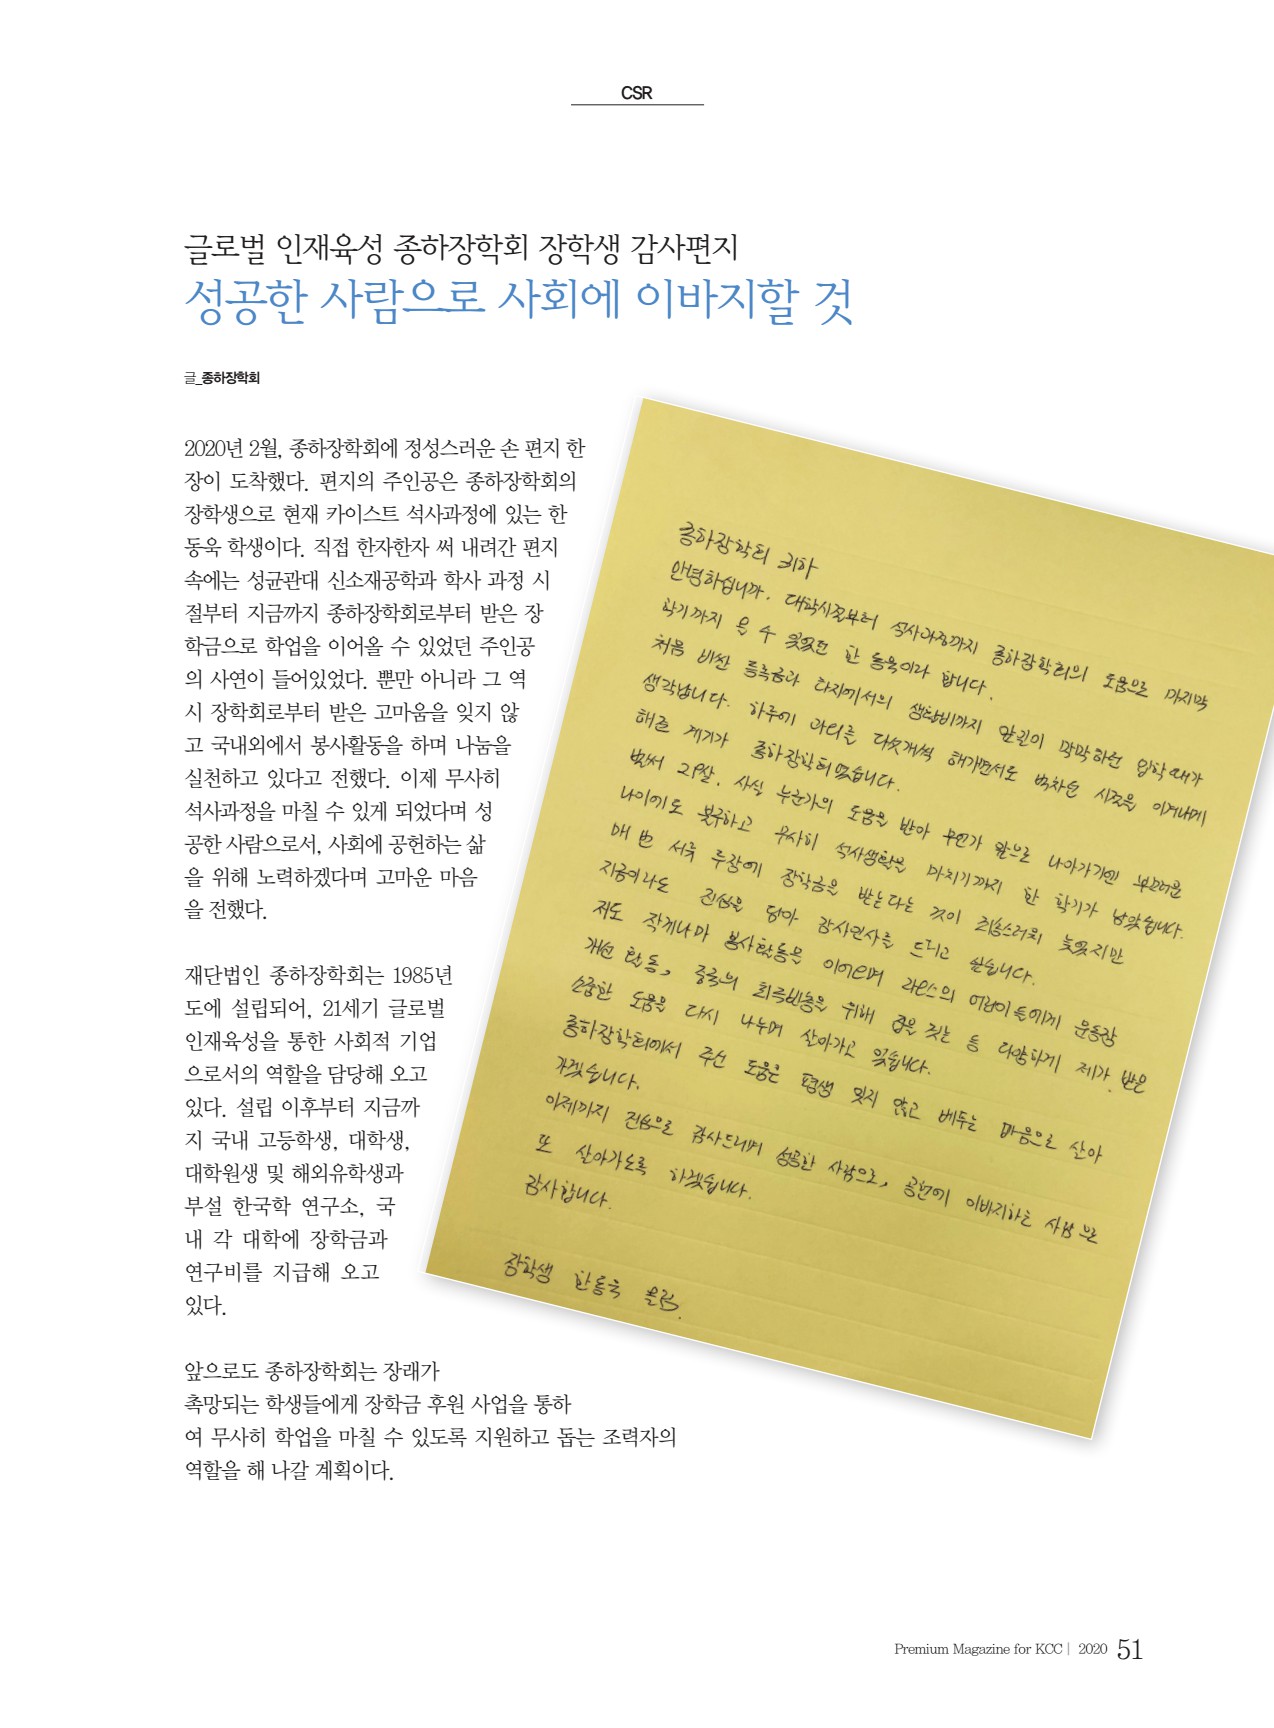 CSR
글로벌 인재육성 종하장학회 장학생 감사편지
성공한 사람으로 사회에 이바지할 것
글_종하장학회
2020년 2월, 종하장학회에 정성스러운 손 편지 한
장이 도착했다. 편지의 주인공은 종하장학회의
장학생으로 현재 카이스트 석사과정에 있는 한
동욱 학생이다. 직접 한자한자 써 내려간 편지
속에는 성균관대 신소재공학과 학사 과정 시
절부터 지금까지 종하장학회로부터 받은 장
학금으로 학업을 이어올 수 있었던 주인공
의 사연이 들어있었다. 뿐만 아니라 그 역
시 장학회로부터 받은 고마움을 잊지 않
고 국내외에서 봉사활동을 하며 나눔을
실천하고 있다고 전했다. 이제 무사히
석사과정을 마칠 수 있게 되었다며 성
공한 사람으로서, 사회에 공헌하는 삶
을 위해 노력하겠다며 고마운 마음
을 전했다.
재단법인 종하장학회는 1985년
도에 설립되어, 21세기 글로벌
인재육성을 통한 사회적 기업
으로서의 역할을 담당해 오고
있다. 설립 이후부터 지금까
지 국내 고등학생, 대학생,
대학원생 및 해외유학생과
부설 한국학 연구소, 국
내 각 대학에 장학금과
연구비를 지급해 오고
있다.
앞으로도 종하장학회는 장래가
촉망되는 학생들에게 장학금 후원 사업을 통하
여 무사히 학업을 마칠 수 있도록 지원하고 돕는 조력자의
역할을 해 나갈 계획이다.
종하장학회 귀하
안녕하십니까. 대학시절부터 석사과정까지 종하장학회의 도움으로 마지막
학기까지 올 수 있었던 한 동욱이라 합니다.
처음 비싼 등록금과 타지에서의 생활비까지 앞길이 막막하던 입학때가
생각납니다. 하루에 과외를 다섯개씩 해가면서도 벅차던 시절을 이겨내게
해준 계기가 종하장학회였습니다.
벌써 29살. 사실 누군가의 도움을 받아 무언가 앞으로 나아가기엔 부끄러운
나이에도 불구하고 무사히 석사생활을 마치기까지 한 학기가 남았습니다.
매 번 서류 두장에 장학금을 받는다는 것이 죄송스러워 늦었지만
지금이나도 진심을 담아 감사인사를 드리고 싶습니다.
저도 작게나마 봉사활동을 이어오며 라오스의 어린이들에게 운동장
개선 활동, 중국의 위해 집을 짓는 등 다양하게 제가 받은
소중한 도움을 다시 나누며 살아가고 있습니다.
종하장학회에서 주신 도움은 평생 잊지 않고 베푸는 마음으로 살아
가겠습니다.
이제까지 진심으로 감사드리며 성공한 사람으로, 공헌에 이바지하는 사람으로
또 살아가도록 하겠습니다.
감사합니다.
장학생 한동욱 올림.
Premium Magazine for KCC | 2020 51